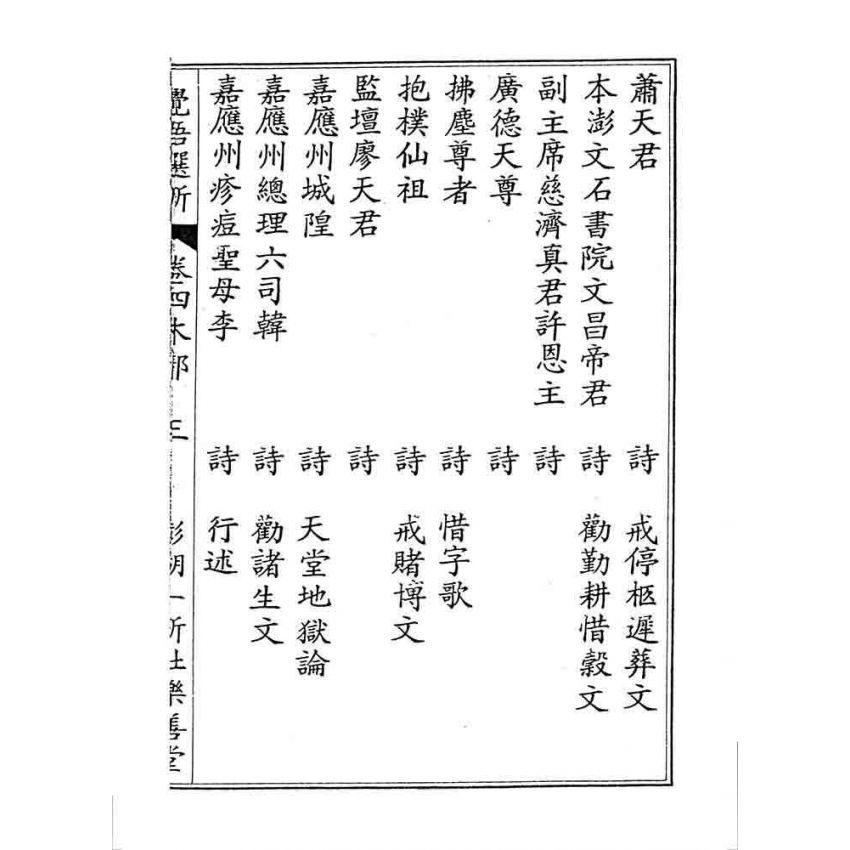 蕭天君 詩 戒停柩遲葬文
本澎文石書院文昌帝君 詩 勸勤耕惜穀文
副主席慈濟真君許恩主 詩
廣德天尊 詩
拂塵尊者 詩 惜字歌
抱樸仙祖 詩 戒賭博文
監壇廖天君 詩
嘉應州城隍 詩 天堂地獄論
嘉應州總理六司韓 詩 勸諸生文
嘉應州疹痘聖母李 詩 行述
覺悟選 卷四木部 三 樂善堂